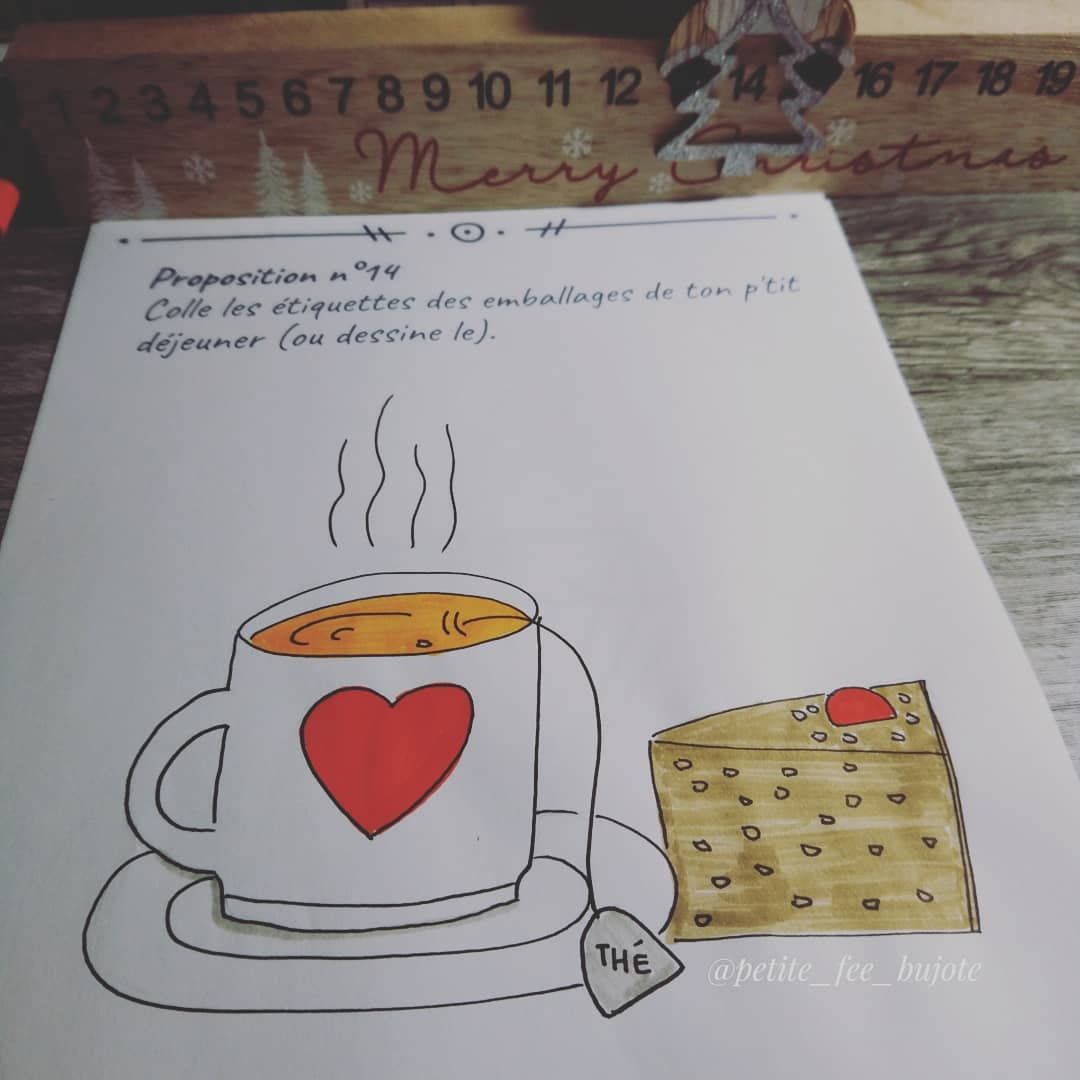 1 2 3 4 5 6 7 8 9 10 11 12 14 16 17 18 19
Merry Christmas
Proposition n°14
Colle les étiquettes des emballages de ton p'tit
déjeuner (ou dessine le).
THÉ
@petite_fee_bujote